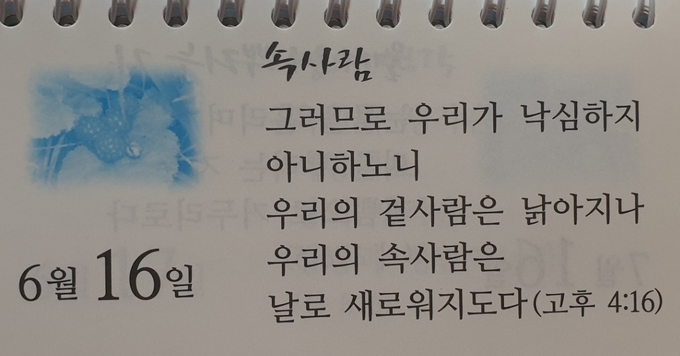 속사람
그러므로 우리가 낙심하지
아니하노니
우리의 겉사람은 낡아지나
우리의 속사람은
날로 새로워지도다(고후 4:16)
6월 16일